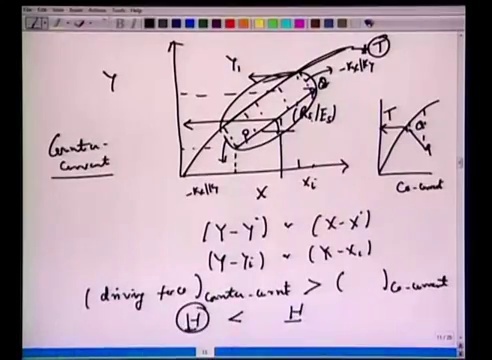 File Edit View Insert Actions Tools Help
Y
Y₁
T
-Kx/Ky
Q
(Rs/Es)
P
Counter-
current
-Kx/Ky
X
Xi
T
Q
P
Co-current
(Y-Y*) ~ (X-X*)
(Y-Yi) ~ (X-Xi)
(driving force)counter-current > ( )co-current
H < H